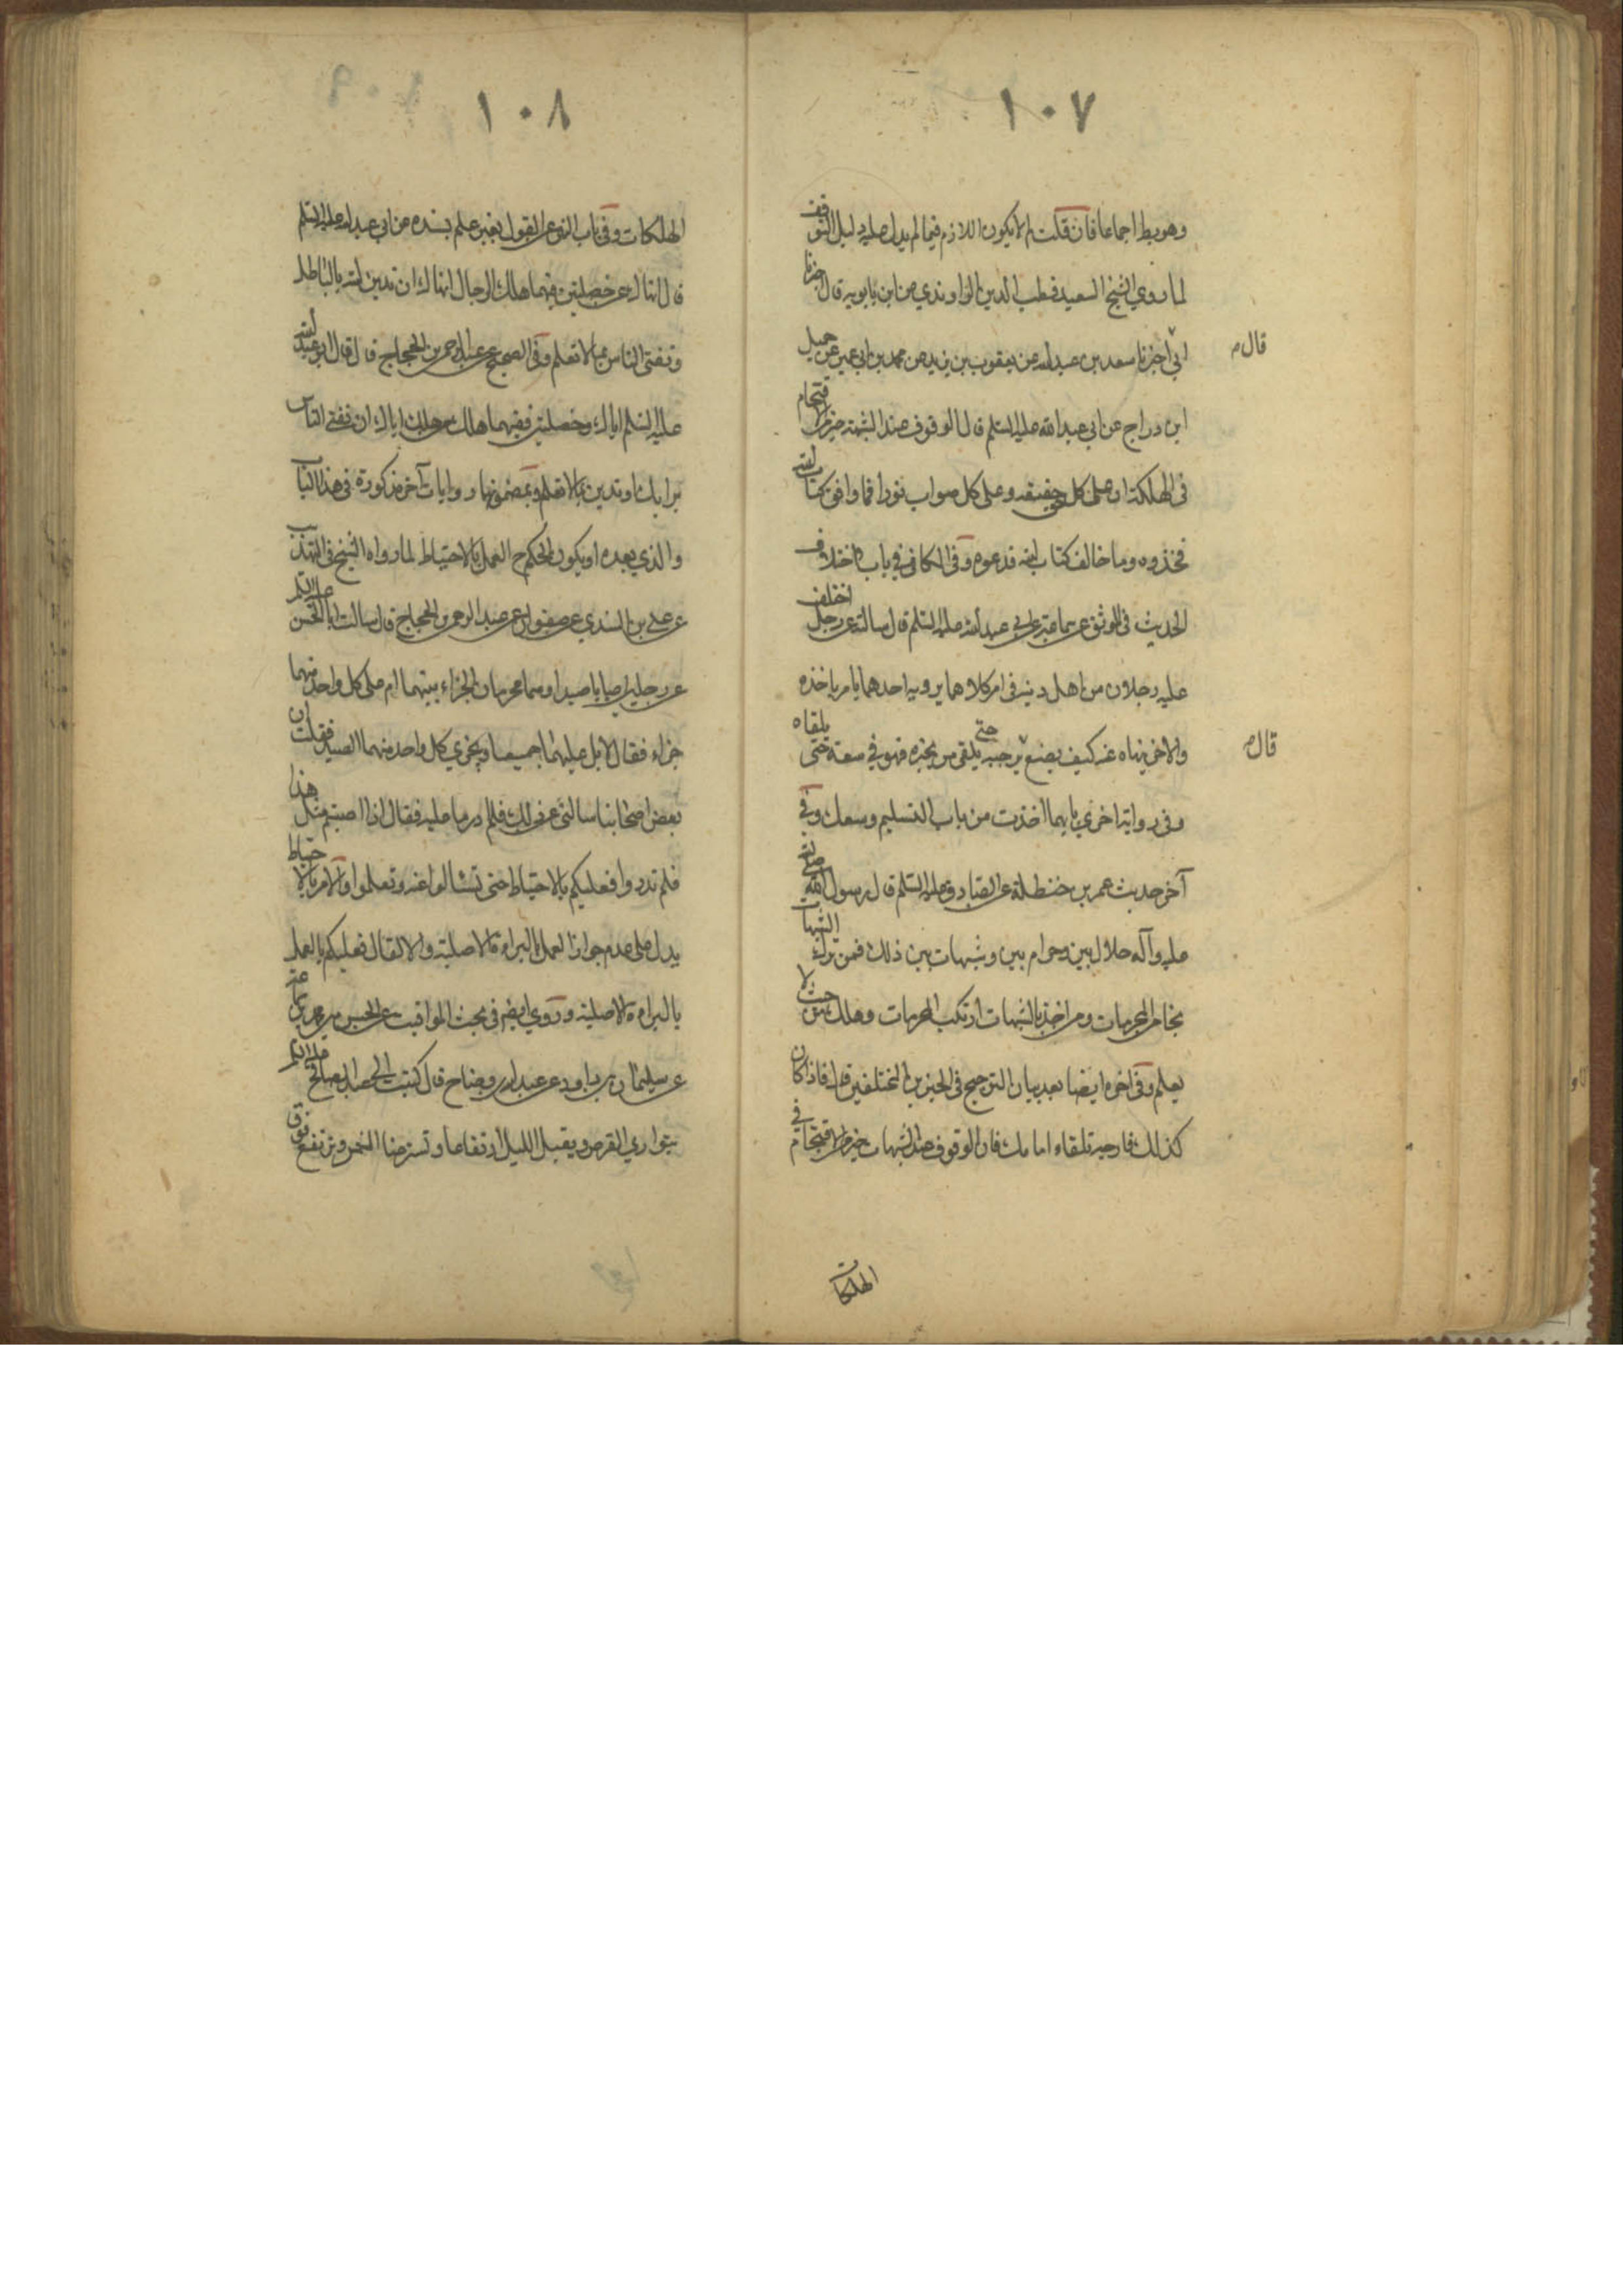 ١٠٧
وهو بط اجماعا فان قلت لم لا يكون اللازم فيما لم يدل عليه دليل التوقف
لما روي الشيخ السعيد قطب الدين الراوندي عن ابن بابويه قال اخبرنا
ابي اخبرنا سعد بن عبد الله عن يعقوب بن يزيد عن محمد بن ابي عمير عن جميل
قال م
ابن دراج عن ابي عبد الله عليه السلم قال الوقوف عند الشبهة خير من الاقتحام
في الهلكة ان على كل حق حقيقه وعلى كل صواب نورا فما وافق كتاب الله
فخذوه وما خالف كتاب الله فدعوه وفي الكافي في باب اختلاف
الحديث في الموثق عن سماعة عن ابي عبد الله عليه السلم قال سالته عن رجل اختلف
عليه رجلان من اهل دينه في امر كلاهما يرويه احدهما يامر باخذه
والاخر ينهاه عنه كيف يصنع يرجئه حتى يلقى من يخبره فهو في سعة حتى يلقاه
قال م
وفي رواية اخرى بايهما اخذت من باب التسليم وسعك وفي
آخر حديث عمر بن حنظلة عن الصادق عليه السلم قال رسول الله صلى الله
عليه وآله حلال بين وحرام بين وشبهات بين ذلك فمن ترك الشبهات
نجا من المحرمات ومن اخذ بالشبهات ارتكب المحرمات وهلك من حيث لا
يعلم وفي اخره ايضا بعد بيان الترجيح في الخبرين المختلفين قال فاذا كان
كذلك فارجه تلقاء امامك فان الوقوف عند الشبهات خير من الاقتحام في
الهلكات
١٠٨
الهلكات وفي باب النهي عن القول بغير علم بسنده عن ابي عبد الله عليه السلم
قال انهاك عن خصلتين فيهما هلك الرجال انهاك ان تدين الله بالباطل
وتفتي الناس بما لا تعلم وفي الصحيح عن عبد الرحمن بن الحجاج قال قال لي ابو عبد الله
عليه السلم اياك وخصلتين ففيهما هلك من هلك اياك ان تفتي الناس
برايك او تدين بما لا تعلم وبمضمونها روايات آخر مذكورة في هذا الباب
والذي بعده او يكون الحكم ح العمل بالاحتياط لما رواه الشيخ في التهذيب
عن علي بن السندي عن صفوان عن عبد الرحمن بن الحجاج قال سالت ابا الحسن عليه السلم
عن رجلين اصابا صيدا وهما محرمان الجزاء بينهما ام على كل واحد منهما
جزاء فقال لا بل عليهما جميعا ويجزي كل واحد منهما الصيد فقلت ان
بعض اصحابنا سالني عن ذلك فلم ادر ما عليه فقال اذا اصبتم مثل هذا
فلم تدروا فعليكم بالاحتياط حتى تسئالوا عنه وتعلموا والامر بالاحتياط
يدل على عدم جواز العمل بالبراءة الاصلية والا لقال فعليكم بالعمل
بالبراءة الاصلية وروي ايضم في بحث المواقيت عن الحسن بن محمد بن سماعة
عن سليمان بن داود عن عبد الله بن وضاح قال كتبت الى العبد الصالح عليه السلم
يتوارى القرص ويقبل الليل ارتفاعا وتستر عنا الشمس وترتفع فوق